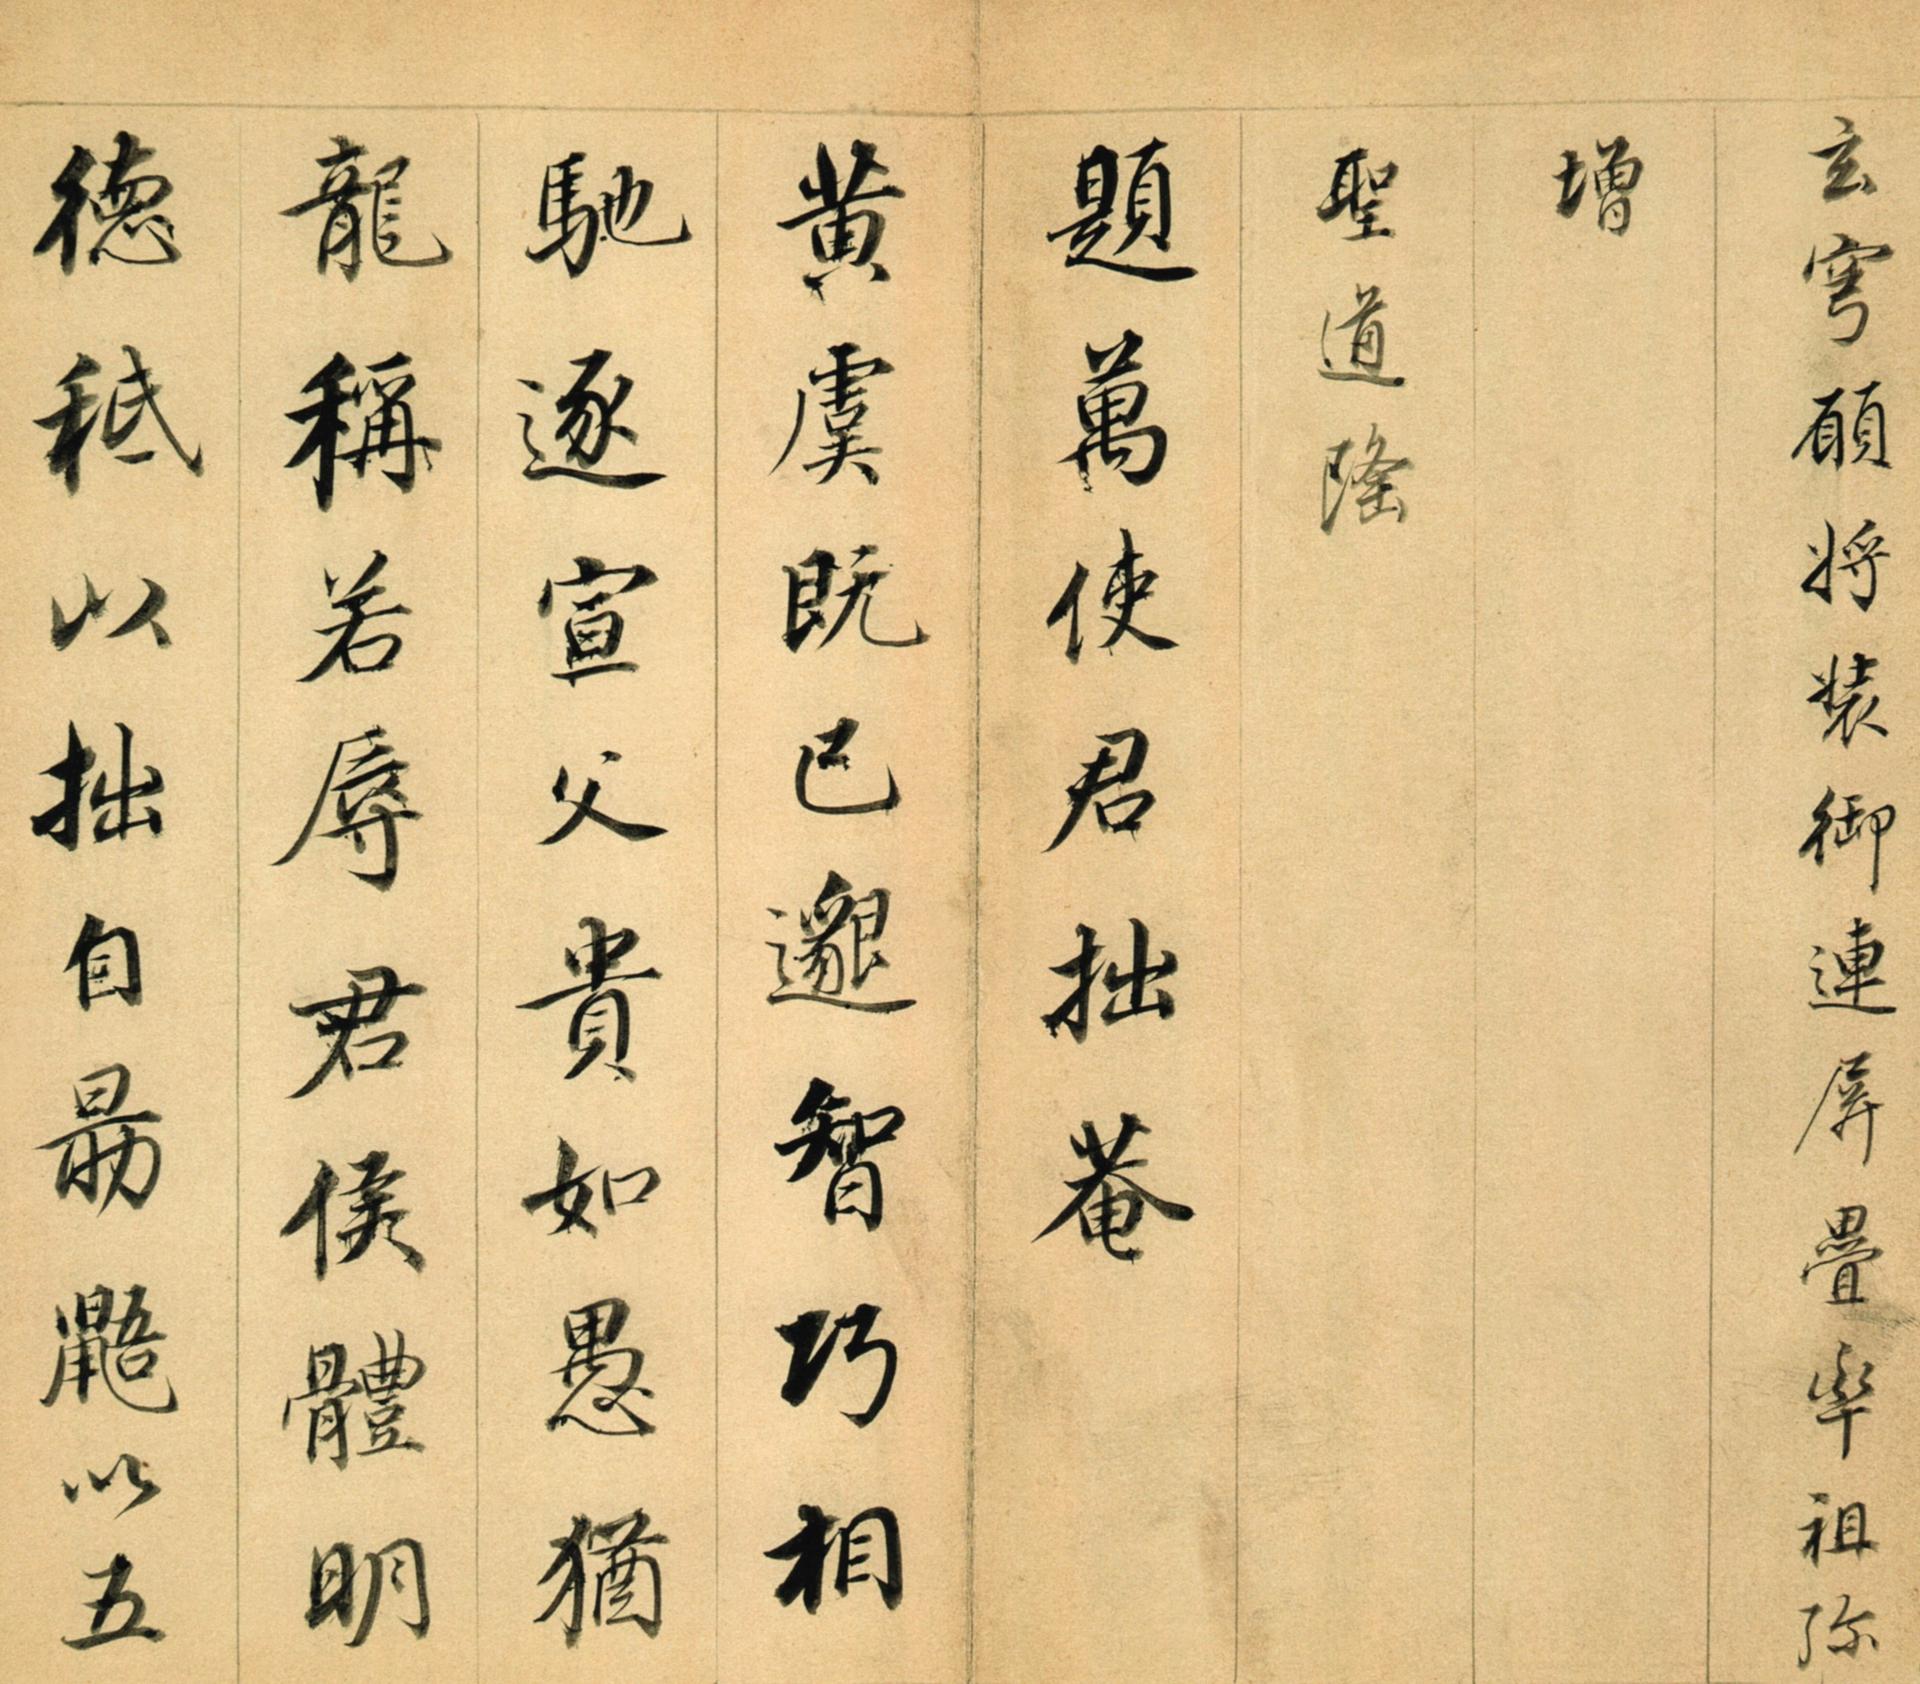 玄穹願將裝御連屏疊率祖弥
增
聖道隆
題萬使君拙菴
黃虞既已邈智巧相
馳逐宣父貴如愚猶
龍稱若辱君侯體明
德秪以拙自勗鼯以五